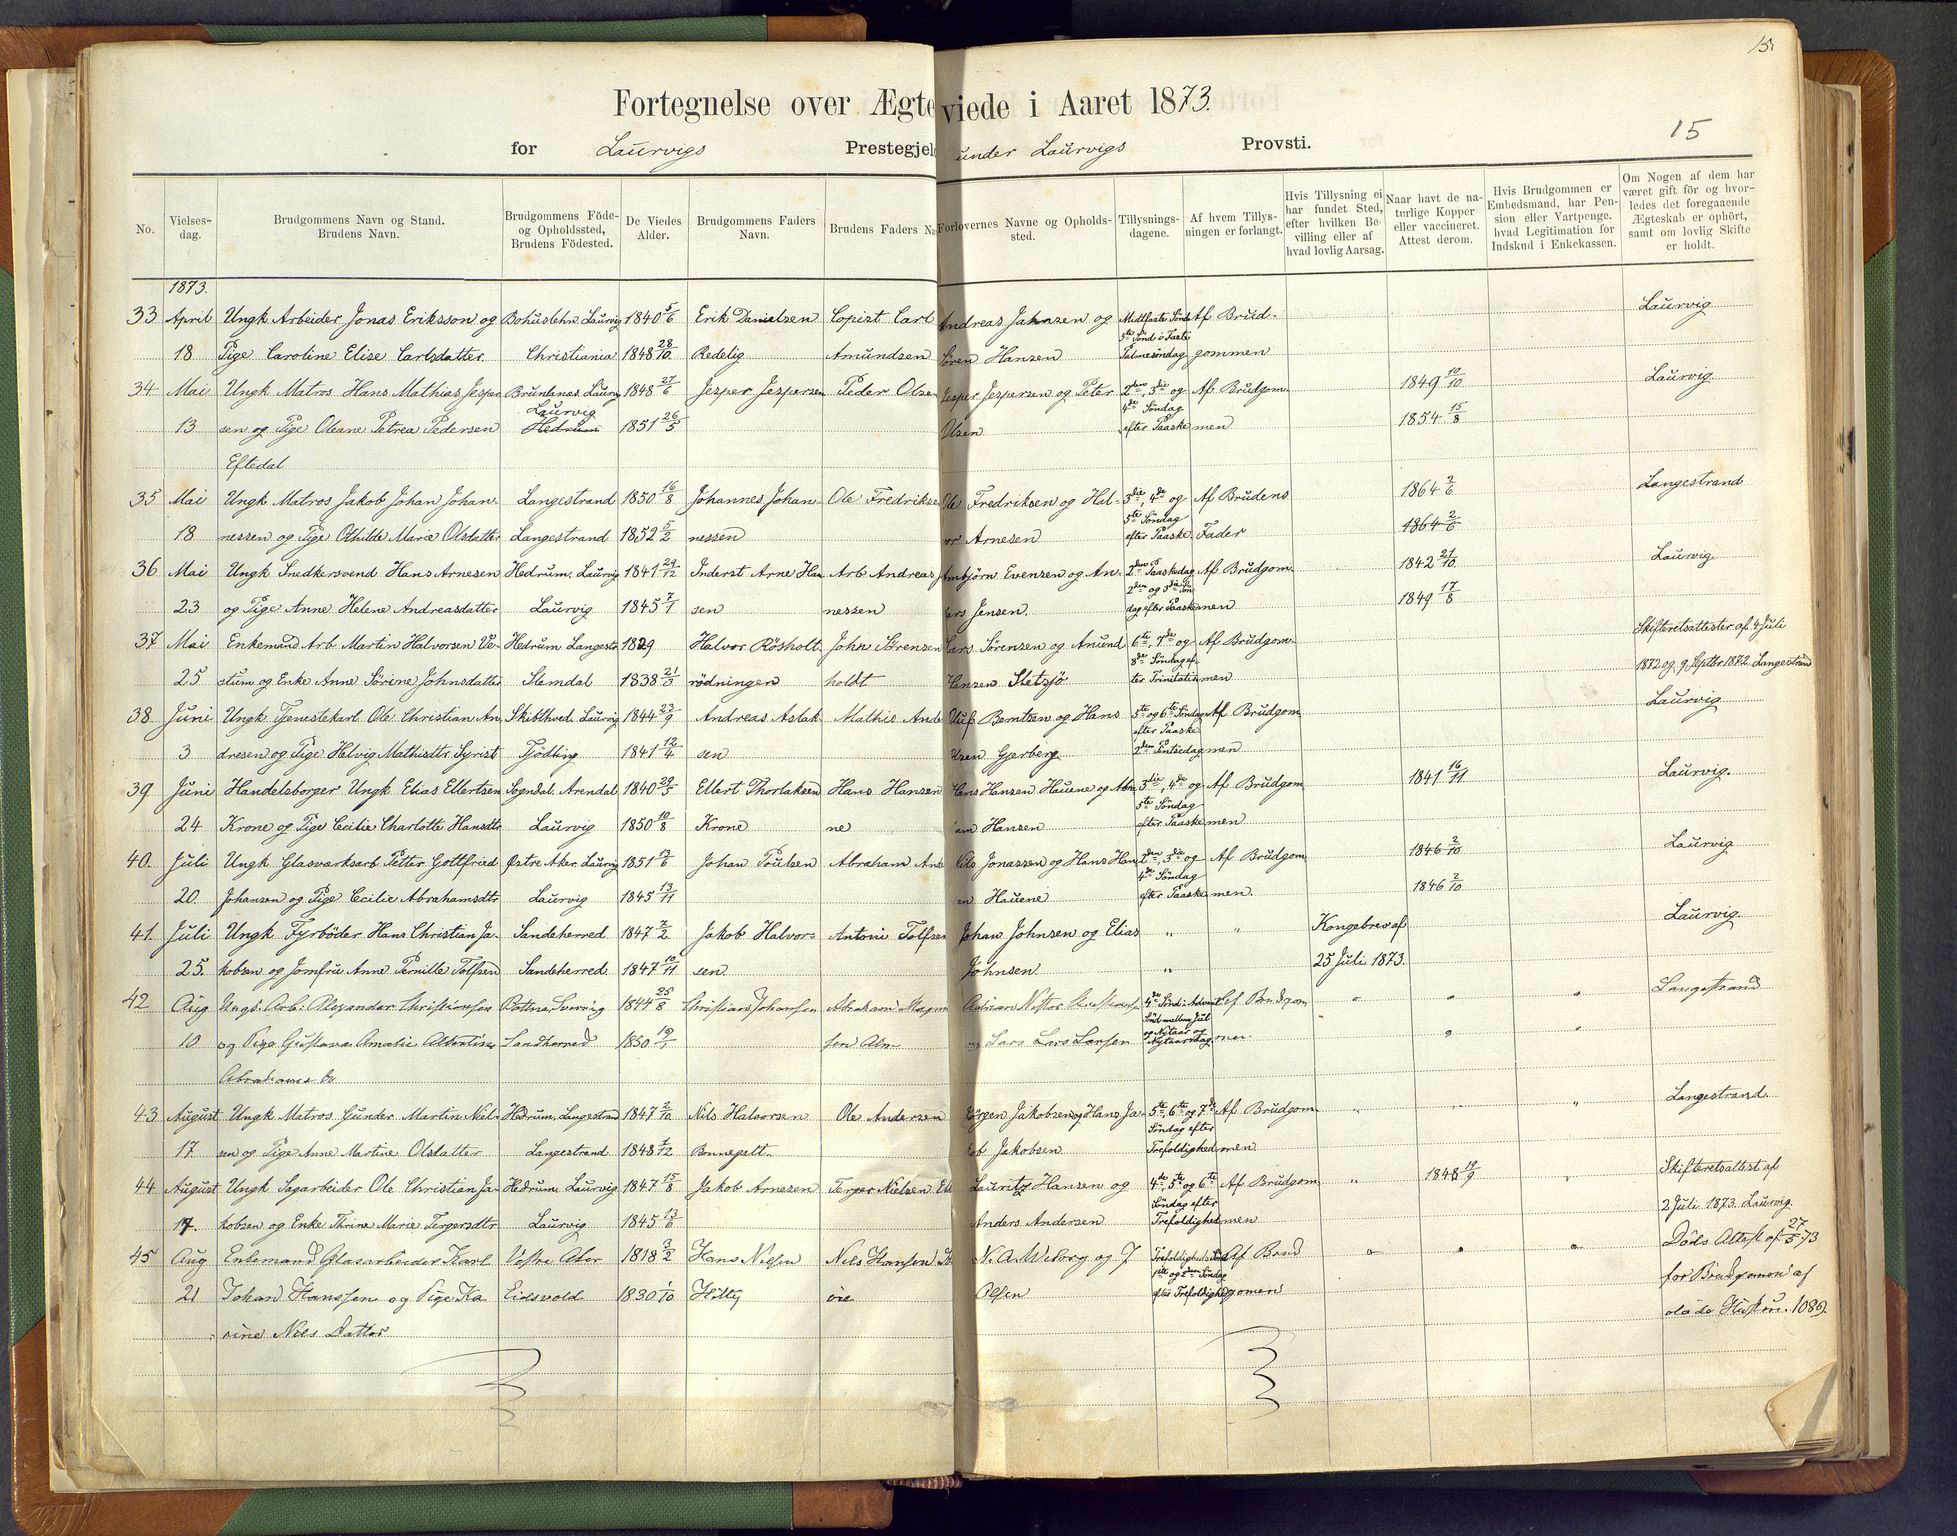 15
Fortegnelse over Ægteviede i Aaret 1873.
15
for Laurvigs Prestegjeld under Laurvigs Provsti.
No. Vielses-dag. Brudgommens Navn og Stand. Brudens Navn. Brudgommens Føde- og Opholdssted, Brudens Fødested. De Viedes Alder. Brudgommens Faders Navn. Brudens Faders Na Forlovernes Navne og Opholds-sted. Tillysnings-dagene. Af hvem Tillys-ningen er forlangt. Hvis Tillysning ei har fundet Sted, efter hvilken Be-villing eller af hvad lovlig Aarsag. Naar havt de na-turlige Kopper eller vaccineret. Attest derom. Hvis Brudgommen er Embedsmand, har Pen-sion eller Vartpenge, hvad Legitimation for Indskud i Enkekassen. Om Nogen af dem har været gift för og hvor-ledes det foregaaende Ægteskab er ophört, samt om lovlig Skifte er holdt.
1873.
33 April Ungk Arbeider Jonas Eriksson og Bohuslehn Laurvig 1840 5/6 Erik Danielsen Copist Carl Andreas Jahnsen og Midtfaste Sönd Af Brud- Laurvig
18 Pige Caroline Elise Carlsdatter Christiania 1848 28/10 Redelig Amundsen Sören Hansen 5te Sönd i Faste Palmesöndag gommen
34 Mai Ungk Matros Hans Mathias Jesper Brunlanes Laurvig 1848 27/6 Jesper Jespersen Peder Olsen Jesper Jespersen og Peter 2den, 3die og Af Brudgom- 1849 10/10 Laurvig.
13 sen og Pige Oleane Petrea Pedersen Laurvig Hedrum 1851 26/5 Olsen 4de Söndag efter Paaske men 1854 15/8
Eftedal
35 Mai Ungk Matros Jakob Johan Johan- Langestrand 1850 16/8 Johannes Johan- Ole Fredriksen Ole Fredriksen og Hal- 3die, 4de og Af Brudens 1864 2/6 Langestrand
18 nessen og Pige Othilde Marie Olsdatter Langestrand 1852 5/2 nessen vor Arnesen 5te Söndag efter Paaske Fader 1864 2/6
36 Mai Ungk Snedkersvend Hans Arnesen Hedrum, Laurvig 1841 29/12 Inderst Arne Han Arb Andreas Ambjörn Evensen og An- 2den Paaskedag Af Brudgom- 1842 21/10 Laurvig.
23 og Pige Anne Helene Andreasdatter Laurvig 1845 7/1 sen nessen ders Jensen. 2den og 3die Sön dag efter Paaske men 1849 17/8
37 Mai Enkemand Arb Martin Halvorsen Ve- Hedrum Langestr 1829 Halvor Rösholt John Sörensen Lars Sörensen og Amund 6te, 7de og Af Brudgom- Skifteretsattester af 4 Juli
25 stum og Enke Anne Sörine Johnsdatter Slemdal 1838 21/3 rödningen holdt Hansen Sletsjö 8de Söndag ef ter Trinitatis men 1872 og 9 Septbr 1872. Langestrand
38 Juni Ungk Tjenestekarl Ole Christian An- Skibthved Laurvig 1844 23/9 Andreas Aslak- Mathis Ande Uuf Berntsen og Hans 5te og 6te Söndag Af Brudgom Laurvig
3 dresen og Pige Helvig Mathisdtr Syrist Tjödling 1841 12/4 sen Olsen Gjerberg. efter Paaske 2den Pintsedag men
39 Juni Handelsborger Ungk Elias Ellertsen Sogndal Arendal 1840 29/5 Ellert Thorlaksen Hans Hansen Hans Hansen Hauene og Abra 3die, 4de og Af Brudgom 1841 16/11 Laurvig.
24 Krone og Pige Cecilie Charlotte Hansdtr Laurvig 1850 10/8 Krone ne ham Hansen 5te Söndag efter Paaske men
40. Juli Ungk Glasværksarb Petter Gottfried Østre Aker Laurvig 1851 13/6 Johan Poulsen Abraham And Nils Jonassen og Hans Han 2den, 3die og Af Brudgom 1846 2/10 Laurvig
20. Johansen og Pige Cecilie Abrahamsdtr Laurvig 1845 13/11 en Hauene 4de Söndag efter Paaske men. 1846 2/10
41. Juli Ungk Fyrböder Hans Christian Ja- Sandeherred 1847 7/2 Jakob Halvor- Antoni Tolfsen Johan Johnsen og Elias " " Kongebrev af Laurvig.
25. kobsen og Jomfru Anne Pernille Tolfsen Sandeherred 1847 10/11 sen. Johnsen " 25 Juli 1873.
42 Aug Ungk: Arb: Alexander Christiansen 1844 25/8 Christian Johansen Abraham Magnu 4de Sönd i Advent Af Brudgom " " " Langestrand
10 og Pige Gustava Amalie Albertine Sandherred 1850 sen Alm og Lars Lars Larsen Sönd mellem Jul og Nytaar og Nytaarsdag men. " "
Abrahams Dr
43 August Ungk Matros Gunder Martin Niel- Hedrum, Langestrand 1847 2/10 Nils Halvorsen Ole Andersen Jörgen Jakobsen og Hans Ja- 5te, 6te og 7de Af Brudgom " " " Langestrand
17 sen og Pige Anne Martine Olsdatter Langestrand 1848 1/12 Bonnegalt. kob Jakobsen Söndag efter Trefoldighed men
44 August Ungk Sagarbeider Ole Christian Ja- Hedrum, Laurvig 1847 15/8 Jakob Arnesen Terger Nielsen Lauritz Hansen og 4de, 5te og 6te Af Brudgom " 1848 19/9 " Skifteretsattest af
17. kobsen og Enke Thrine Marie Tergersdtr Laurvig 1845 13/6 Anders Andersen Söndag efter Trefoldighed men 2 Juli 1873. Laurvig.
45 Aug Enkemand Glasarbeider Karl Vestre Aker 1818 3/2 Hans Nilsen Nils Hansen N. A. Wiborg og J Trefoldigheds Sönd Af Brud " " " Döds Attest af 27/5 73
21 Johan Hanssen og Pige Ka Eidsvold 1830 1/10 Hilly Olsen 1ste og 2den Söndag efter Trefoldighed gomen for Brudgomens af
rine Nils Datter döde Hustru.